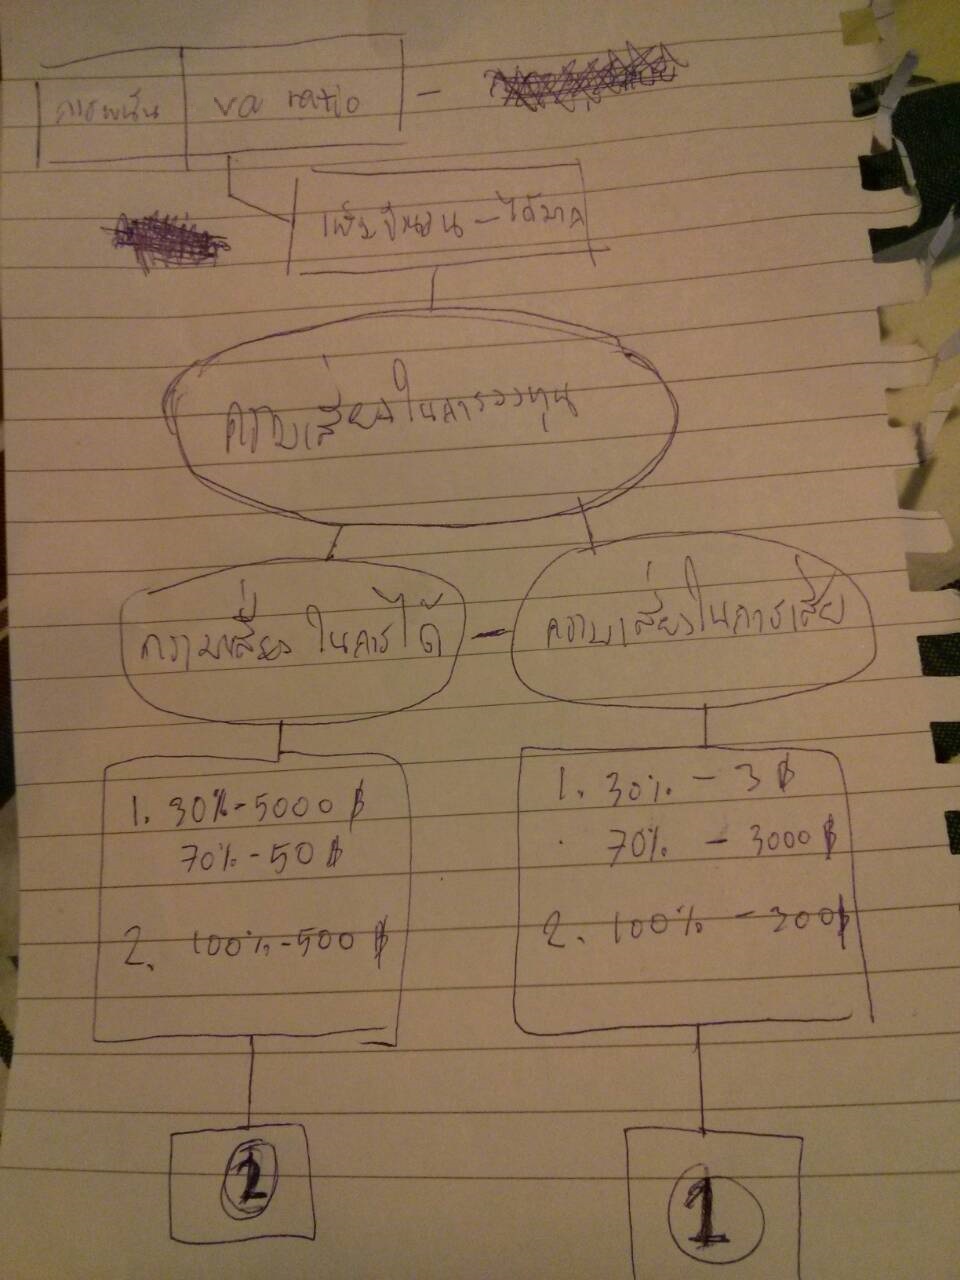 การพนัน va ratio -
เพิ่มจีนวน - ได้มาก
ความเสี่ยงในการลงทุน
ความเสี่ยงในการได้ - ความเสี่ยงในการเสีย
1. 30% - 5000 ฿
70% - 50 ฿
2. 100% - 500 ฿
1. 30% - 3 ฿
70% - 3000 ฿
2. 100% - 300 ฿
2
1